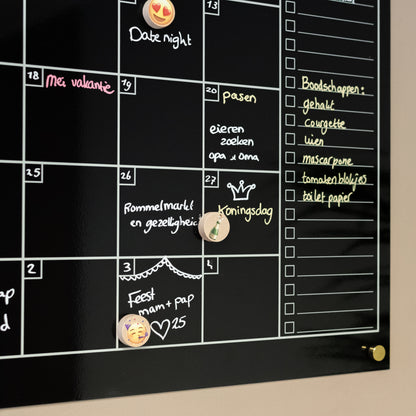 13
Date night
18
Mei vakantie
19
20
pasen
eieren
zoeken
opa & oma
25
26
Rommelmarkt
en gezelligheid
27
Koningsdag
2
3
Feest
mam + pap
25
4
Boodschappen:
gehakt
courgette
uien
mascarpone
tomatenblokjes
toilet papier